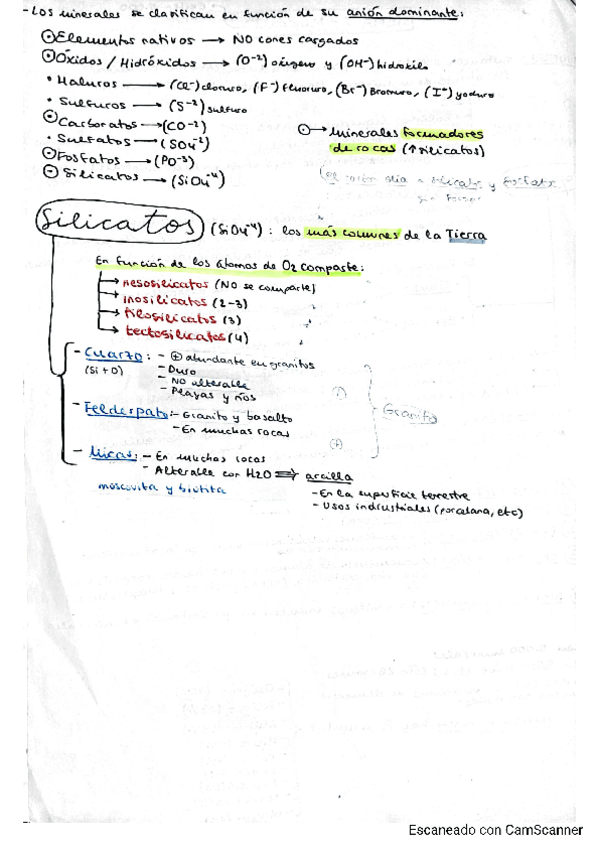 - Los minerales se clasifican en función de su anión dominante:
Elementos nativos → NO cones cargados
Óxidos / Hidróxidos → (O⁻²) oxígeno y (OH⁻) hidroxilo
• Haluros → (Cl⁻) cloruro, (F⁻) fluoruro, (Br⁻) Bromuro, (I⁻) yoduro
• Sulfuros → (S⁻²) sulfuro
Carbonatos → (CO⁻²)
• Sulfatos → (SO₄⁻²)
Fosfatos → (PO⁻³)
Silicatos → (SiO₄⁻⁴)
→ minerales formadores
de rocas (↑silicatos)
Silicatos (SiO₄⁻⁴) : los más comunes de la Tierra
En función de los átomos de O₂ comparte:
→ nesosilicatos (NO se comparte)
→ inosilicatos (2-3)
→ filosilicatos (3)
→ tectosilicatos (4)
- Cuarzo: - ⊕ abundante en granitos
(Si + O) - Duro
- NO alterable
- Playas y ríos
- Feldespato: - Granito y basalto
- En muchas rocas
Granito
- Micas: - En muchas rocas
- Alterable con H2O ⇒ arcilla
moscovita y biotita
- En la superficie terrestre
- Usos industriales (porcelana, etc)
Escaneado con CamScanner